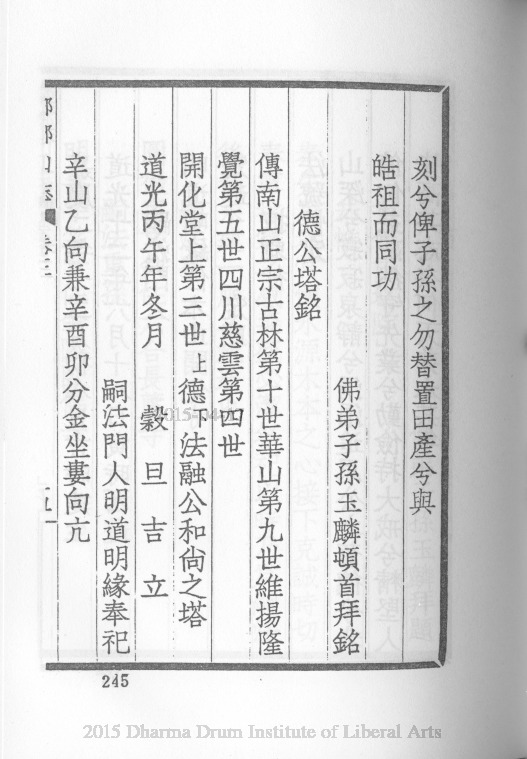 刻兮俾子孫之勿替置田產兮與
皓祖而同功
佛弟子孫玉麟頓首拜銘
德公塔銘
傳南山正宗古林第十世華山第九世維揚隆
覺第五世四川慈雲第四世
開化堂上第三世上德下法融公和尙之塔
道光丙午年冬月 穀旦吉立
嗣法門人明道明緣奉祀
辛山乙向兼辛酉卯分金坐婁向亢
245
2015 Dharma Drum Institute of Liberal Arts